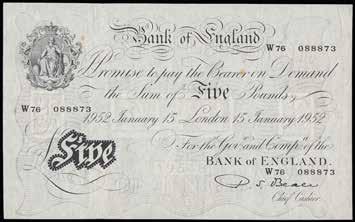 Bank of England
W76 088873
I Promise to pay the Bearer on Demand
the Sum of Five Pounds
W76 088873
1952 January 15 London 15 January 1952
For the Govr. and Compa. of the
BANK OF ENGLAND.
W76 088873
Five
P. S. Beale
Chief Cashier